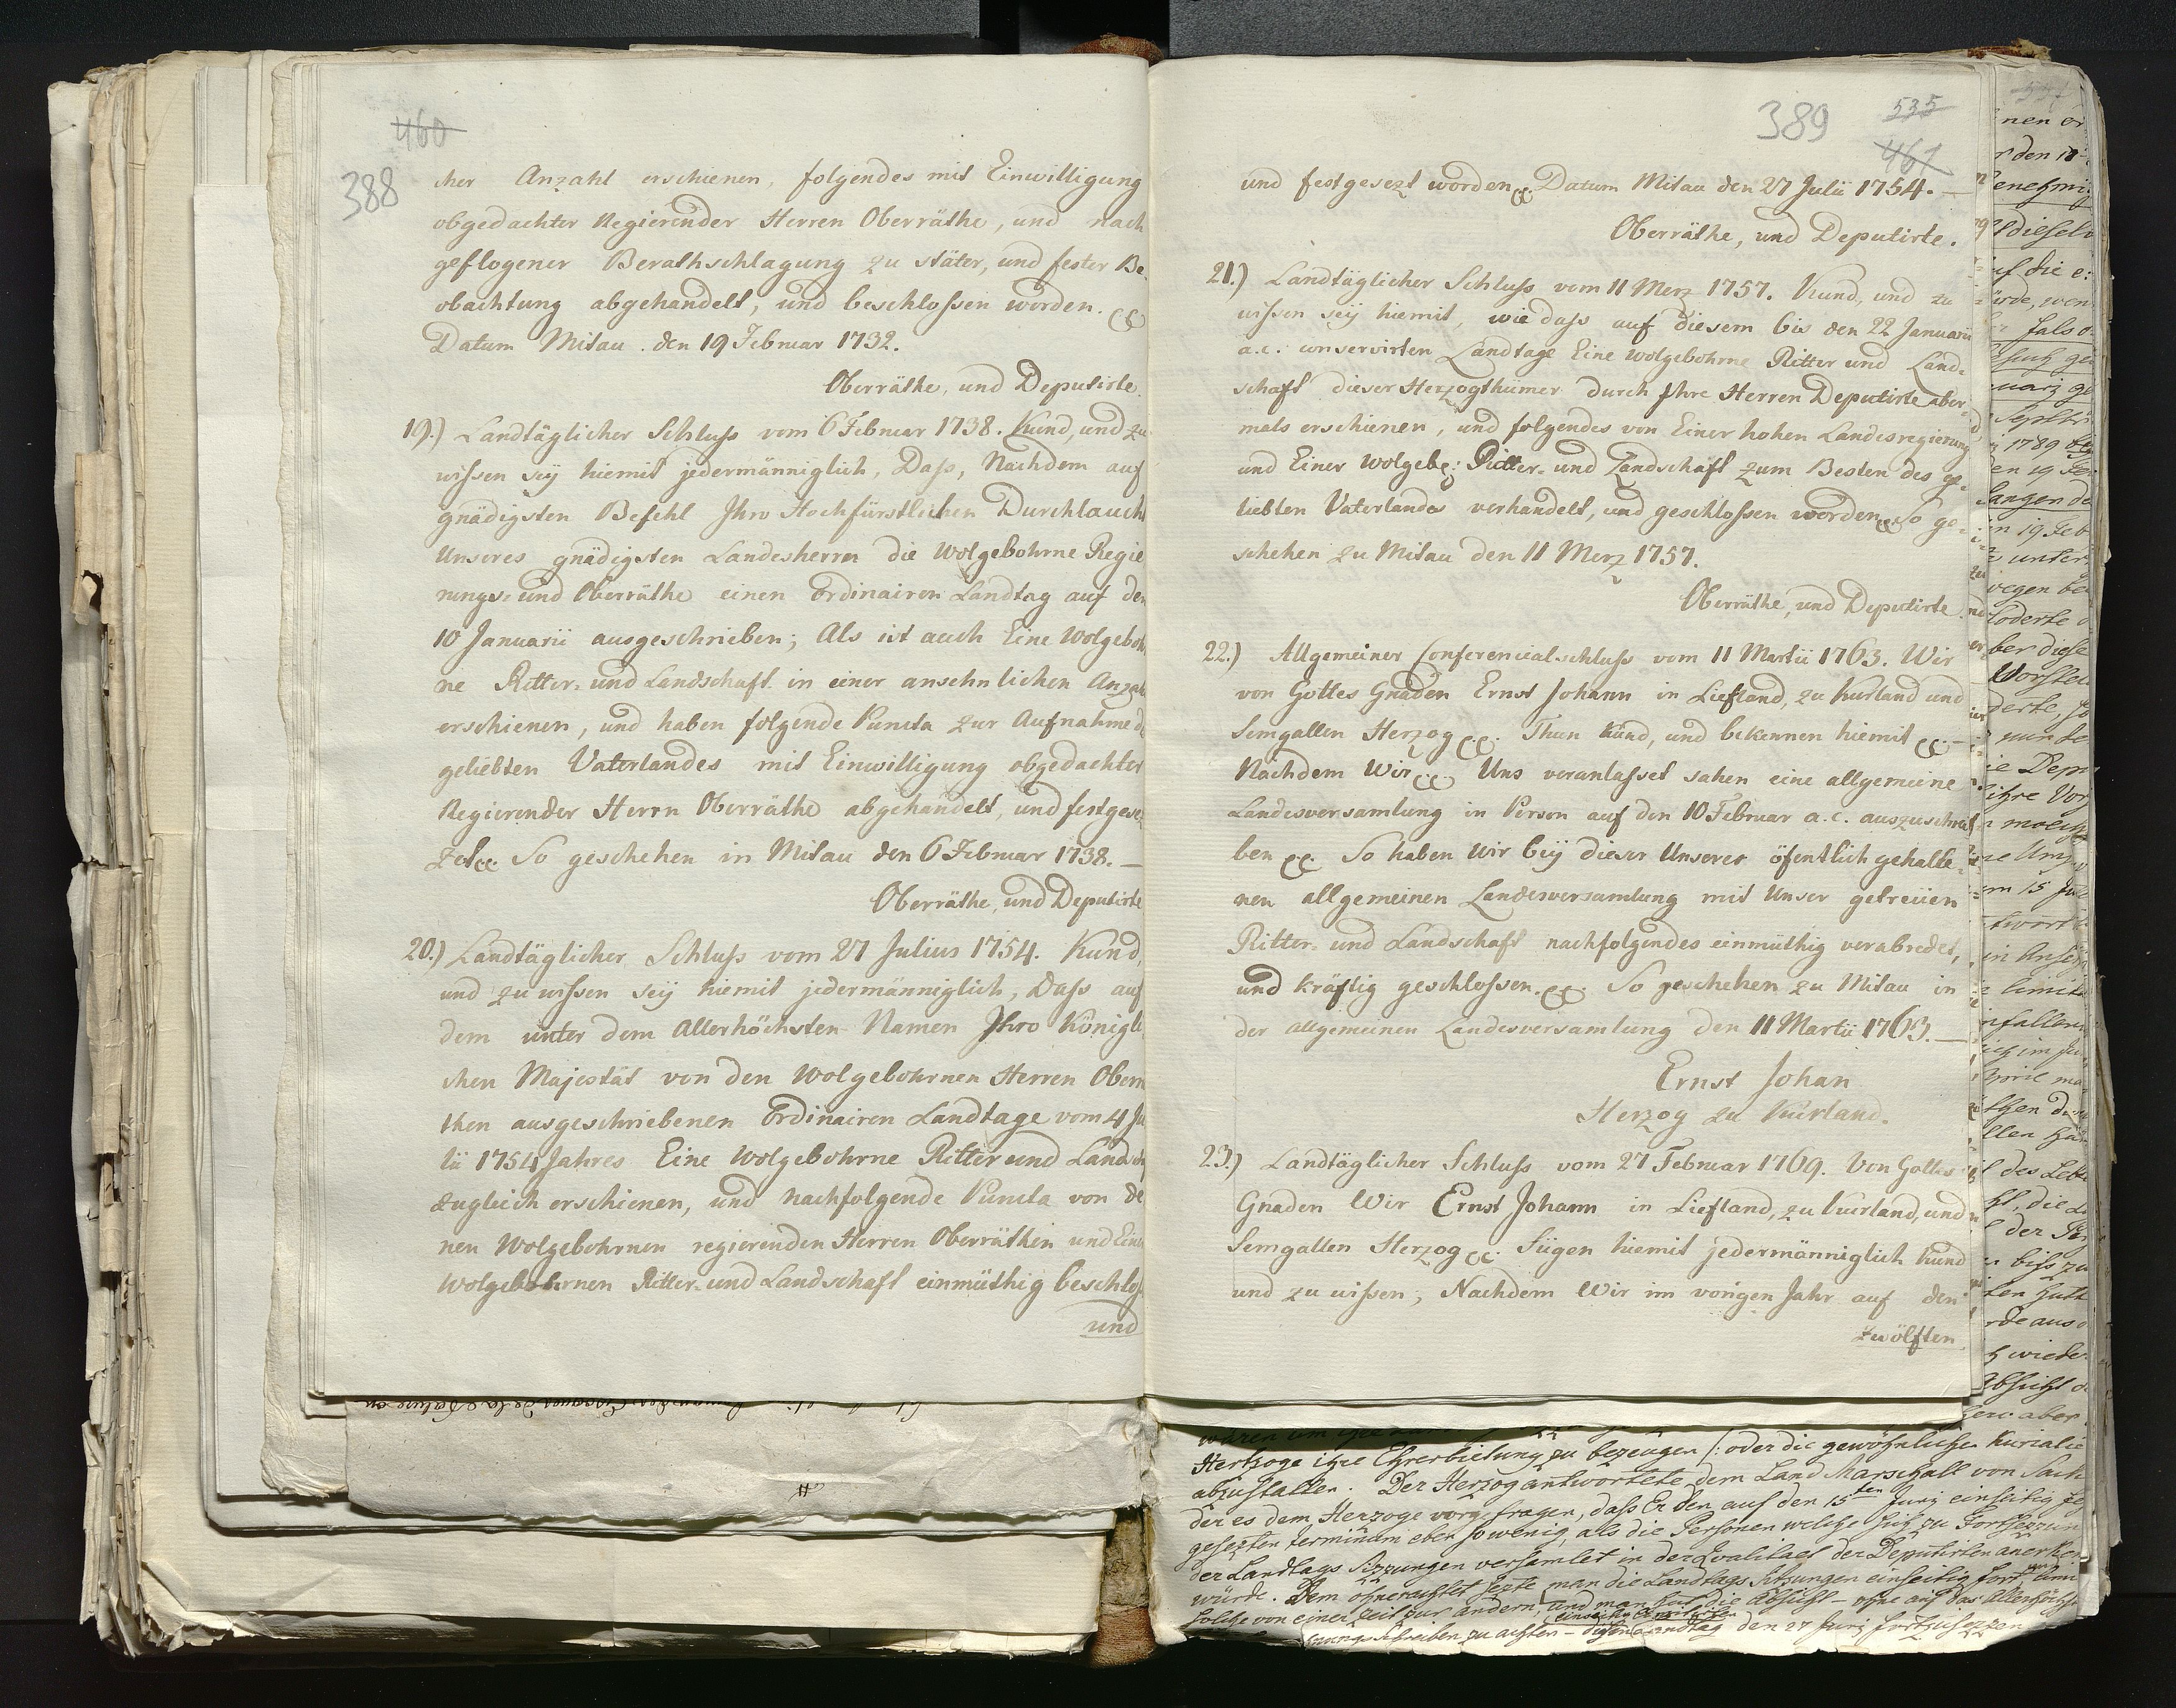 460
388
cher Anzahl erschienen, folgendes mit Einwilligung
obgedachter Regierender Herren Oberräthe, und nach
gepflogener Berathschlagung zu stäter, und fester Be-
obachtung abgehandelt, und beschloßen worden. &&
Datum Mitau den 19 Februar 1732.
Oberräthe, und Deputirte.
19.) Landtäglicher Schluß vom 6 Februar 1738. Kund, und zu
wißen seÿ hiemit jedermänniglich, Daß, Nachdem auf
gnädigsten Befehl Ihro Hochfürstlichen Durchlaucht
Unseres gnädigsten Landesherrn die Wolgebohrne Regie
rungs- und Oberräthe einen Ordinairen Landtag auf den
10 Januarii ausgeschrieben; Als ist auch Eine Wolgeboh
ne Ritter- und Landschaft in einer ansehnlichen Anzahl
erschienen, und haben folgende Puncta zur Aufnahme d
geliebten Vaterlandes mit Einwilligung obgedachter
Regierender Herrn Oberräthe abgehandelt, und festgese
zet && So geschehen in Mitau den 6 Februar 1738. —
Oberräthe, und Deputirte
20.) Landtäglicher Schluß vom 27 Julius 1754. Kund,
und zu wißen seÿ hiemit jedermänniglich, Daß auf
dem unter dem Allerhöchsten Namen Ihro Königli
chen Majestät von den Wolgebohrnen Herren Oberrä
then ausgeschriebenen Ordinairen Landtage vom 4 Ju
lii 1754 Jahres Eine Wolgebohrne Ritter und Landsch
zugleich erschienen, und nachfolgende Puncta von de
nen Wolgebohrnen regierenden Herren Oberräthen und Eine
Wolgebohrnen Ritter- und Landschaft einmüthig beschloß
und
389
535
461
und festgesezt worden && Datum Mitau den 27 Julii 1754. —
Oberräthe, und Deputirte.
21.) Landtäglicher Schluß vom 11 Merz 1757. Kund, und zu
wißen seÿ hiemit, wie daß auf diesem bis den 22 Januarii
a.c. conservirten Landtage Eine Wolgebohrne Ritter und Land-
schaft dieser Herzogthümer durch Ihre Herren Deputirte aber-
mals erschienen, und folgendes von Einer hohen Landesregierung
und Einer Wolgeb: Ritter- und Landschaft zum Besten des ge-
liebten Vaterlandes verhandelt, und geschloßen worden && So ge-
schehen zu Mitau den 11 Merz 1757.
Oberräthe, und Deputirte.
22.) Allgemeiner Conferencialschluß vom 11 Martii 1763. Wir
von Gottes Gnaden Ernst Johann in Liefland, zu Kurland und
Semgallen Herzog && Thun Kund, und bekennen hiemit && —
Nachdem Wir && Uns veranlaßet sahen eine allgemeine
Landesversamlung in Person auf den 10 Februar a.c. auszuschrei-
ben && So haben Wir beÿ dieser Unserer öfentlich gehalte-
nen allgemeinen Landesversamlung mit Unser getreüen
Ritter- und Landschaft nachfolgendes einmüthig verabredet,
und kräftig geschloßen. && So geschehen zu Mitau in
der allgemeinen Landesversamlung den 11 Martii 1763. —
Ernst Johan
Herzog zu Kurland.
23.) Landtäglicher Schluß vom 27 Februar 1769. Von Gottes
Gnaden Wir Ernst Johann in Liefland, zu Kurland, und
Semgallen Herzog && Fügen hiemit jedermänniglich kund
und zu wißen, Nachdem Wir im vorigen Jahr auf den
zwölften
Hertzoge ihre Ehrerbietung zu bezeugen /: oder die gewöhnlichen Kurialie
abzustatten. Der Herzog antwortete dem Land Marschall von Sack
der es dem Herzoge vorgetragen, daß Er den auf den 15ten Junÿ einseitig
gesezten terminum eben so wenig, als die Personen welche sich zu Fortsezzun
der Landtags Sizzungen versamlet in der Qualitaet der Deputirten anerken
würde. Dem ohnerachtet sezte man die Landtags Sitzungen einseitig fort
solche von einer Zeit zur andern, und man hat die Absicht – ohne auf das Allerhöchste
Schreiben zu achten – diesen Landtag den 27 Junÿ fortzusezzen